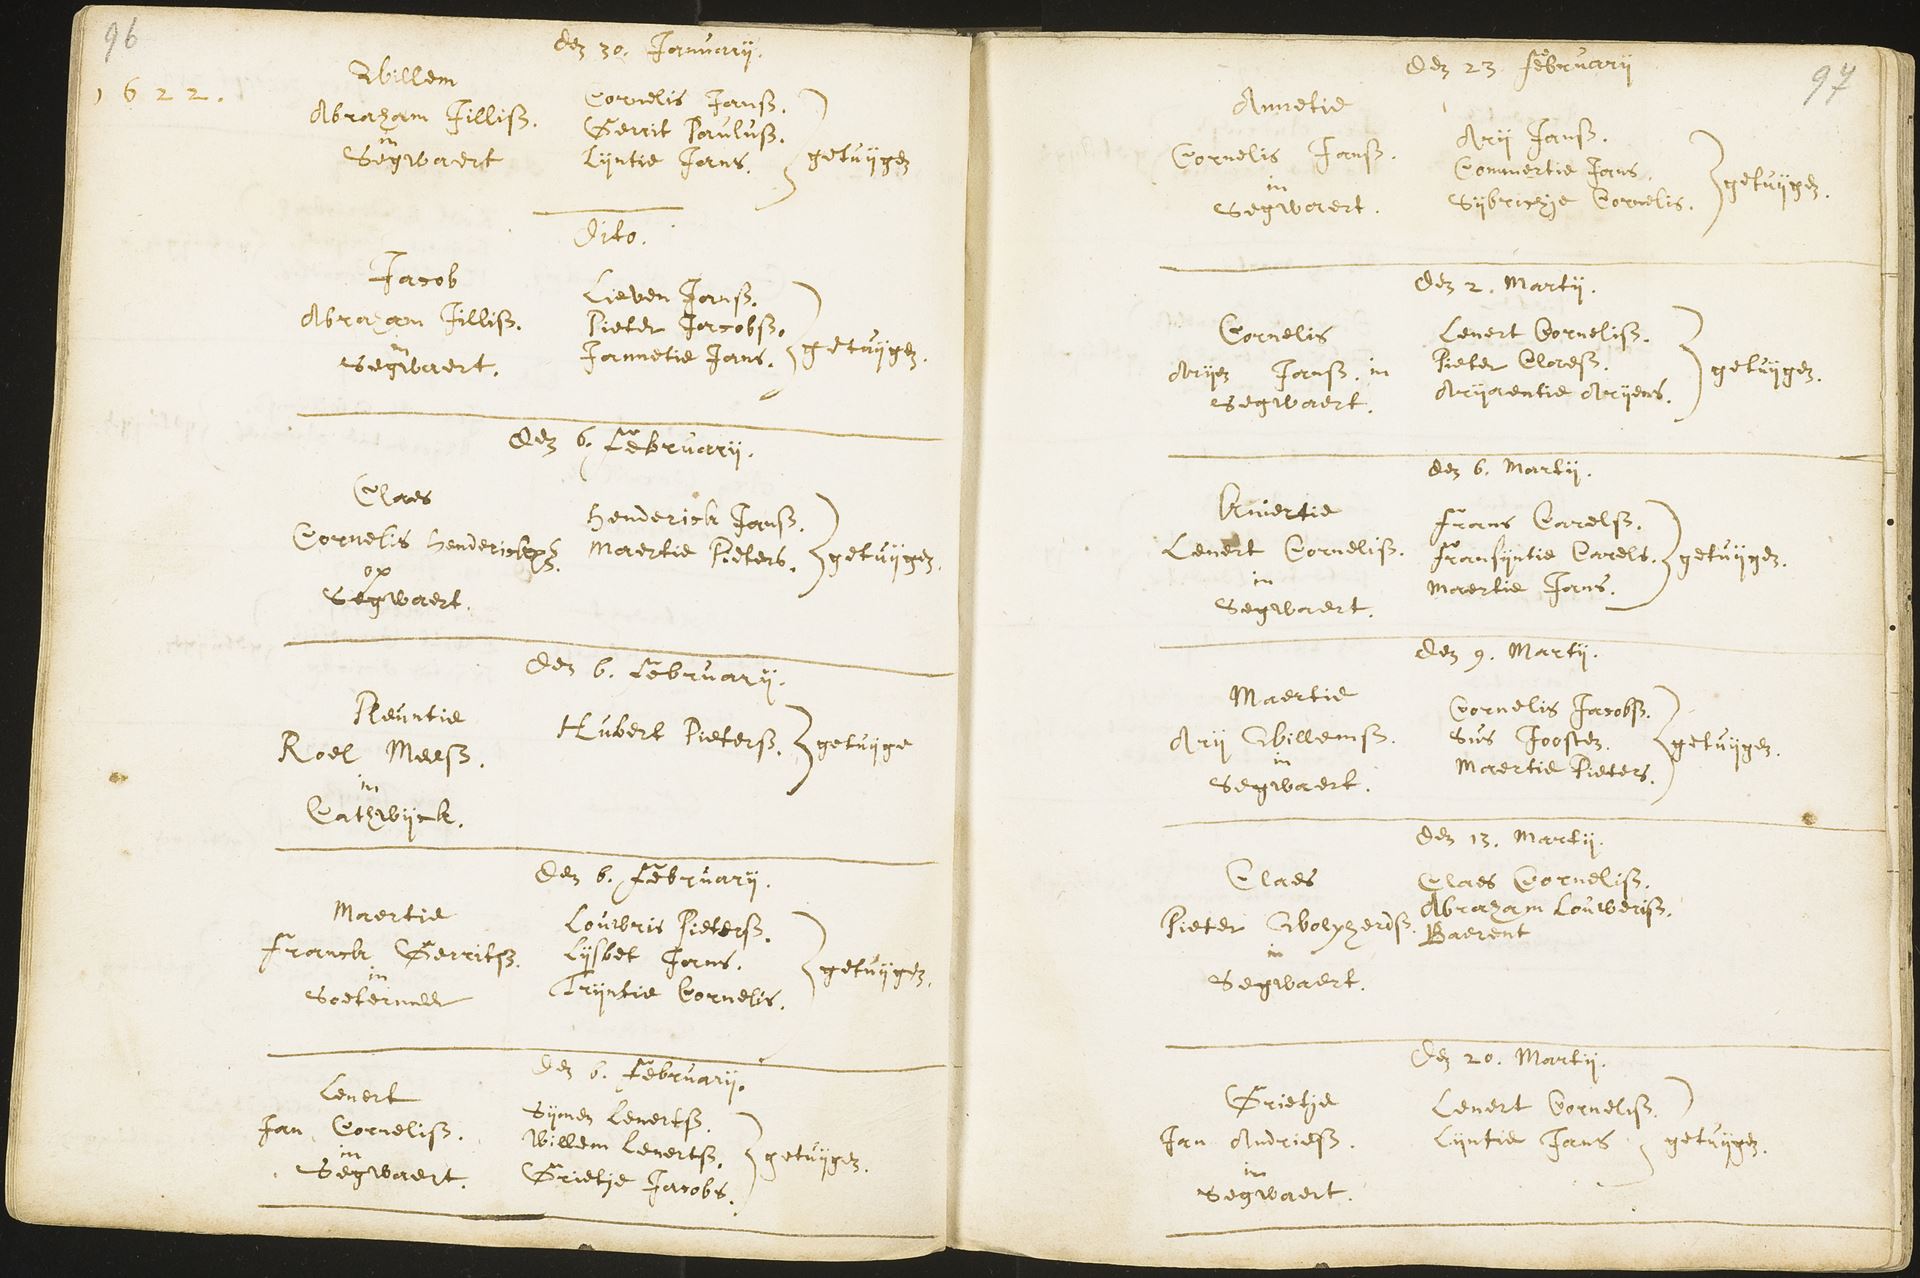 96
1622.
den 30. Januarij.
Willem
Abraham Jilliss.
in
Segwaert
Cornelis Janss.
Gerrit Pauluss.
Lijntie Jans.
getuijgen
Dito.
Jacob
Abraham Jilliss.
in
Segwaert.
Lieven Janss.
Pieter Jacobss.
Jannetie Jans.
getuijgen.
den 6. februarij.
Claes
Cornelis Henderickxss.
op
Segwaert.
Henderick Janss.
Maertie Pieters.
getuijgen.
den 6. februarij.
Pleuntie
Roel Meess.
in
Catwijck.
Hubert Pieterss.
getuijge
den 6. februarij.
Maertie
Franck Gerritss.
in
Soetermeer
Louwris Pieterss.
Lijsbet Jans.
Trijntie Cornelis.
getuijgen.
den 6. februarij.
Lenert
Jan Corneliss.
in
Segwaert.
Sijmen Lenertss.
Willem Lenertss.
Grietje Jacobs.
getuijgen.
97
den 23 februarij
Annetie
Cornelis Janss.
in
Segwaert.
Arij Janss.
Commertie Jans.
Sijbrichje Cornelis.
getuijgen.
den 2. Martij.
Cornelis
Arijen Janss. in
Segwaert.
Lenert Corneliss.
Pieter Claess.
Arijaentie Arijens.
getuijgen.
den 6. Martij.
Lenert Corneliss.
in
Segwaert.
Frans Carelss.
Fransijntie Carels.
Maertie Jans.
getuijgen.
den 9. Martij.
Maertie
Arij Willemss.
in
Segwaert.
Cornelis Jacobss.
Sus Joosten.
Maertie Pieters.
getuijgen.
den 13. Martij.
Claes
Pieter Wolpherdss.
in
Segwaert.
Claes Corneliss.
Abraham Louweriss.
Baerent
den 20. Martij.
Grietje
Jan Andriess.
in
Segwaert.
Lenert Corneliss.
Lijntie Jans
getuijgen.